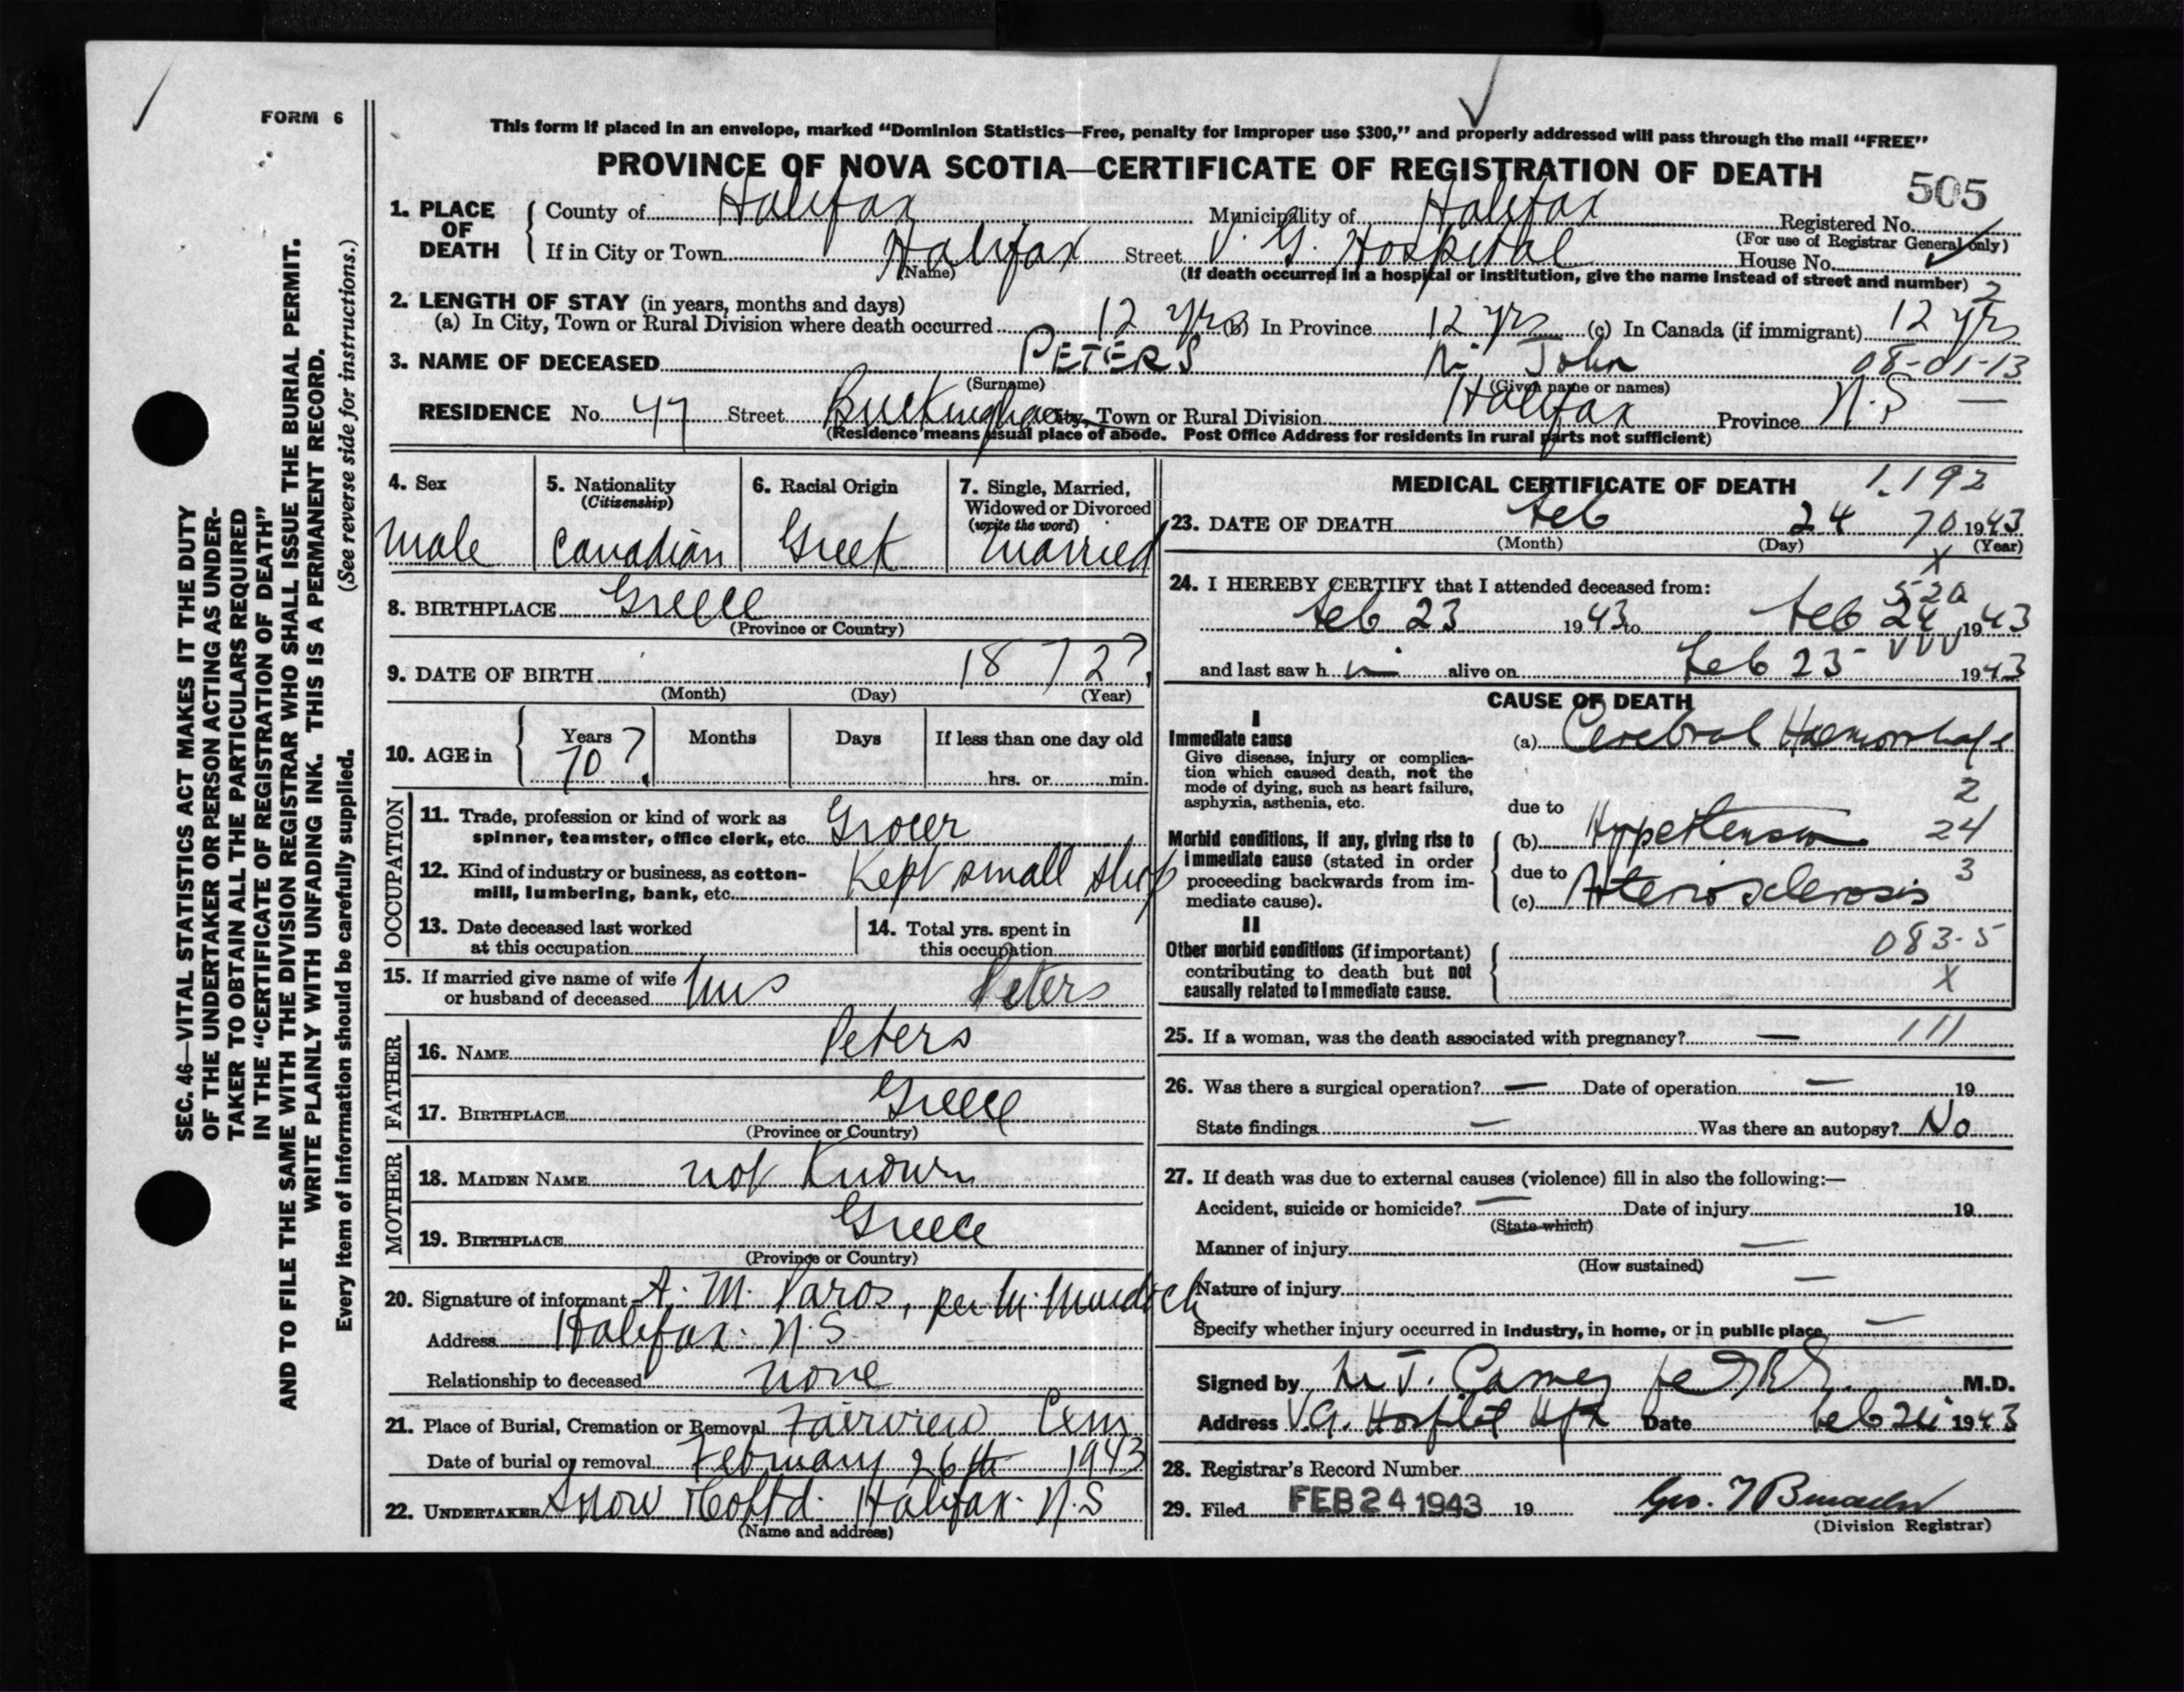 FORM 6
This form if placed in an envelope, marked “Dominion Statistics—Free, penalty for improper use $300,” and properly addressed will pass through the mail “FREE”
PROVINCE OF NOVA SCOTIA—CERTIFICATE OF REGISTRATION OF DEATH
505
1. PLACE OF DEATH
County of Halifax Municipality of Halifax Registered No.
(For use of Registrar General only)
If in City or Town Halifax Street V. G. Hospital House No.
(Name) (If death occurred in a hospital or institution, give the name instead of street and number)
2
2. LENGTH OF STAY (in years, months and days)
(a) In City, Town or Rural Division where death occurred 12 yrs (b) In Province 12 yrs (c) In Canada (if immigrant) 12 yrs
3. NAME OF DECEASED PETERS John 08-01-13
(Surname) (Given name or names)
RESIDENCE No. 47 Street Buckingham City, Town or Rural Division Halifax Province N.S —
(Residence means usual place of abode. Post Office Address for residents in rural parts not sufficient)
4. Sex
Male
5. Nationality
(Citizenship)
Canadian
6. Racial Origin
Greek
7. Single, Married,
Widowed or Divorced
(write the word)
Married
8. BIRTHPLACE Greece
(Province or Country)
9. DATE OF BIRTH 1872?
(Month) (Day) (Year)
10. AGE in
Years Months Days If less than one day old
70? hrs. or min.
OCCUPATION
11. Trade, profession or kind of work as
spinner, teamster, office clerk, etc. Grocer
12. Kind of industry or business, as cotton-
mill, lumbering, bank, etc. Kept small shop
13. Date deceased last worked
at this occupation
14. Total yrs. spent in
this occupation
15. If married give name of wife
or husband of deceased Mrs Peters
FATHER
16. NAME Peters
17. BIRTHPLACE Greece
(Province or Country)
MOTHER
18. MAIDEN NAME not Known
19. BIRTHPLACE Greece
(Province or Country)
20. Signature of informant A. M. Paros, per M Murdoch
Address Halifax. N.S
Relationship to deceased none
21. Place of Burial, Cremation or Removal Fairview Cem
Date of burial or removal February 26th 1943
22. UNDERTAKER Snow & Co Ltd. Halifax. N.S
(Name and address)
MEDICAL CERTIFICATE OF DEATH 1.192
23. DATE OF DEATH Feb 24 70 1943
(Month) (Day) (Year)
X
24. I HEREBY CERTIFY that I attended deceased from:
52a
Feb 23 1943 to Feb 24 1943
VVV
and last saw h im alive on Feb 23 1943
CAUSE OF DEATH
I
Immediate cause
Give disease, injury or complica-
tion which caused death, not the
mode of dying, such as heart failure,
asphyxia, asthenia, etc.
(a) Cerebral Haemorrhage
2
due to
Morbid conditions, if any, giving rise to
immediate cause (stated in order
proceeding backwards from im-
mediate cause).
(b) Hypertension 24
due to 3
(c) Arteriosclerosis
II
Other morbid conditions (if important)
contributing to death but not
causally related to immediate cause.
083-5
X
25. If a woman, was the death associated with pregnancy? — 111
26. Was there a surgical operation? — Date of operation — 19
State findings — Was there an autopsy? No
27. If death was due to external causes (violence) fill in also the following:—
Accident, suicide or homicide? — Date of injury 19
(State which)
Manner of injury —
(How sustained)
Nature of injury —
Specify whether injury occurred in industry, in home, or in public place —
Signed by M.D.
Address V.G. Hospital Hfx Date Feb 24 1943
28. Registrar's Record Number
29. Filed FEB 24 1943 19
(Division Registrar)
SEC. 46—VITAL STATISTICS ACT MAKES IT THE DUTY
OF THE UNDERTAKER OR PERSON ACTING AS UNDER-
TAKER TO OBTAIN ALL THE PARTICULARS REQUIRED
IN THE “CERTIFICATE OF REGISTRATION OF DEATH”
AND TO FILE THE SAME WITH THE DIVISION REGISTRAR WHO SHALL ISSUE THE BURIAL PERMIT.
WRITE PLAINLY WITH UNFADING INK. THIS IS A PERMANENT RECORD.
Every item of information should be carefully supplied. (See reverse side for instructions.)